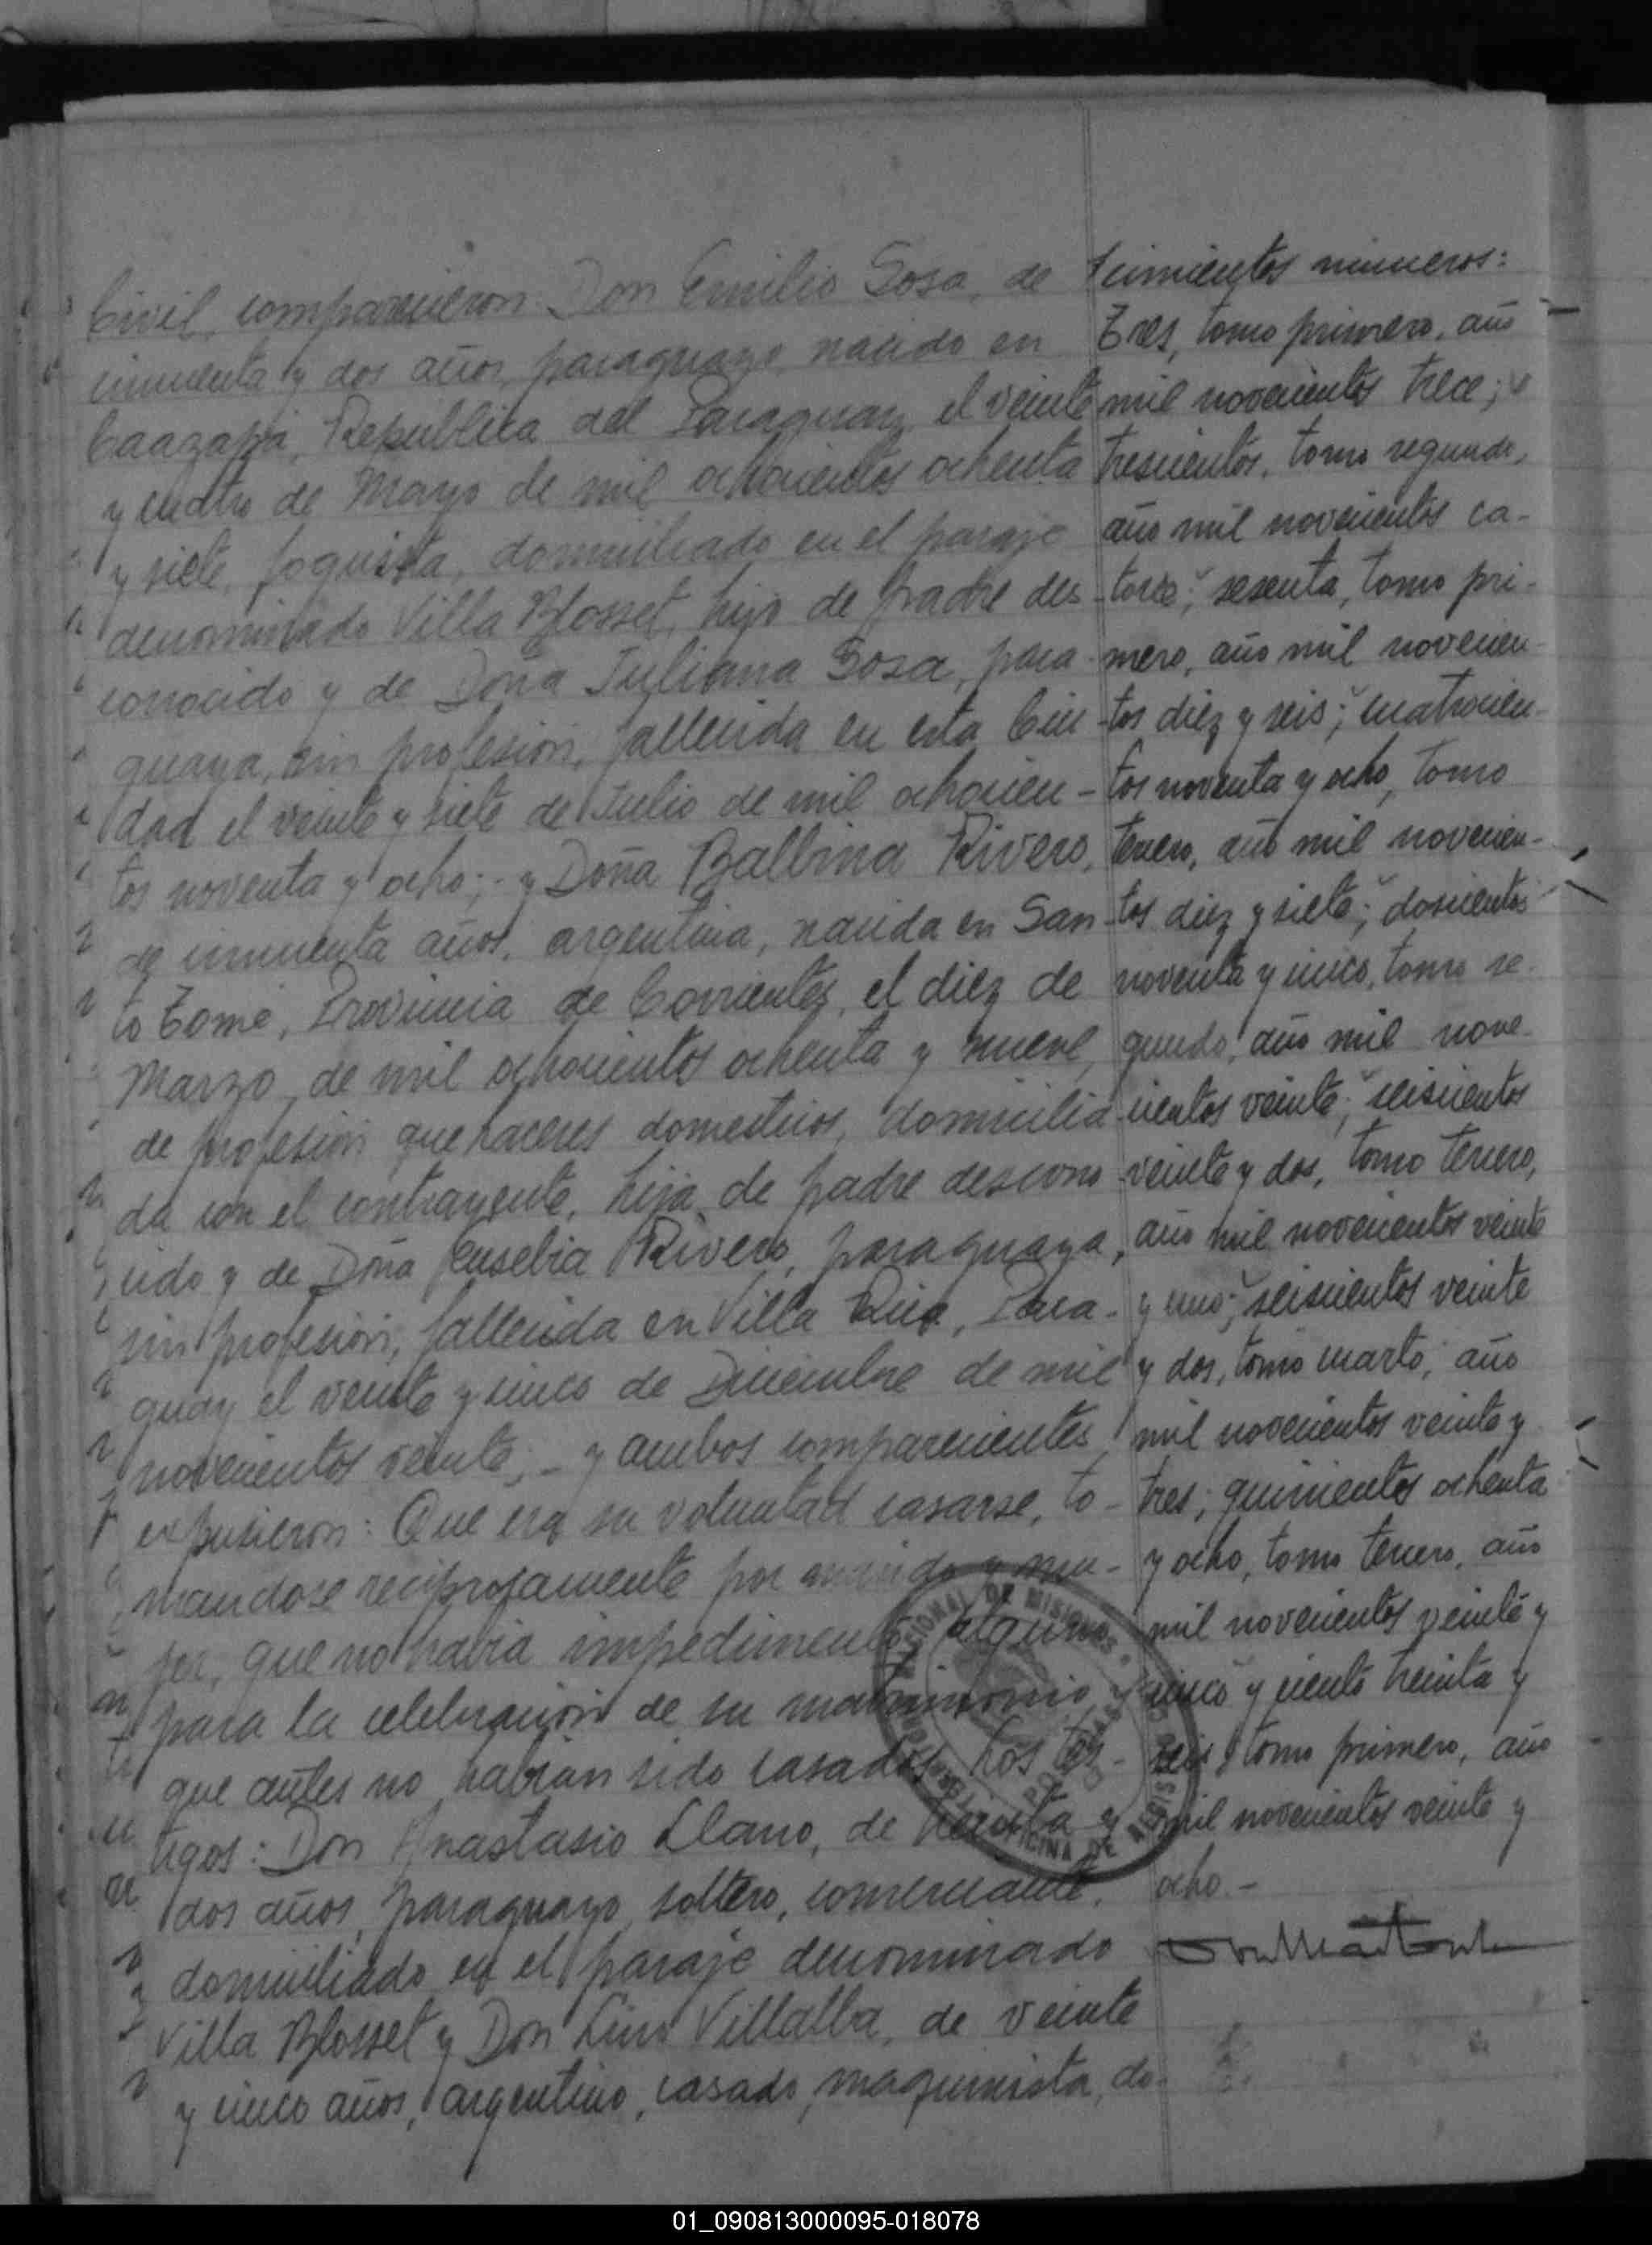 Civil, comparecieron: Don Emilio Sosa, de
cincuenta y dos años, paraguayo, nacido en
Caazapá, Republica del Paraguay, el veinte
y cuatro de Mayo de mil ochocientos ochenta
y siete, foguista, domiciliado en el paraje
denominado Villa Blosset, hijo de padre des-
conocido y de Doña Juliana Sosa, para-
guaya, sin profesión, fallecida en esta Ciu-
dad el veinte y siete de Julio de mil ochocien-
tos noventa y ocho;- y Doña Balbina Rivero,
de cincuenta años, argentina, nacida en San-
to Tomé, Provincia de Corrientes, el diez de
Marzo de mil ochocientos ochenta y nueve,
de profesión quehaceres domesticos, domicilia-
da con el contrayente, hija de padre descono-
cido y de Doña Eusebia Rivero, paraguaya,
sin profesión, fallecida en Villa Rica, Para-
guay el veinte y cinco de Diciembre de mil
novecientos veinte;- y ambos comparecientes
expusieron: Que era su voluntad casarse, to-
mandose reciprocamente por marido y mu-
jer, que no habia impedimento alguno
para la celebración de su matrimonio y
que antes no habian sido casados. Los tes-
tigos: Don Anastasio Llano, de treinta y
dos años, paraguayo, soltero, comerciante,
domiciliado en el paraje denominado
Villa Blosset y Don Luis Villalba, de veinte
y cinco años, argentino, casado, maquinista, do-
cimientos números:
Tres, tomo primero, año
mil novecientos trece;
trescientos, tomo segundo,
año mil novecientos ca-
torce; sesenta, tomo pri-
mero, año mil novecien-
tos diez y seis; cuatrocien-
tos noventa y ocho, tomo
tercero, año mil novecien-
tos diez y siete; doscientos
noventa y cinco, tomo se-
gundo, año mil nove-
cientos veinte; seiscientos
veinte y dos, tomo tercero,
año mil novecientos veinte
y uno; seiscientos veinte
y dos, tomo cuarto, año
mil novecientos veinte y
tres; quinientos ochenta
y ocho, tomo tercero, año
mil novecientos veinte y
cinco y ciento treinta y
seis, tomo primero, año
mil novecientos veinte y
ocho.-
01_090813000095-018078